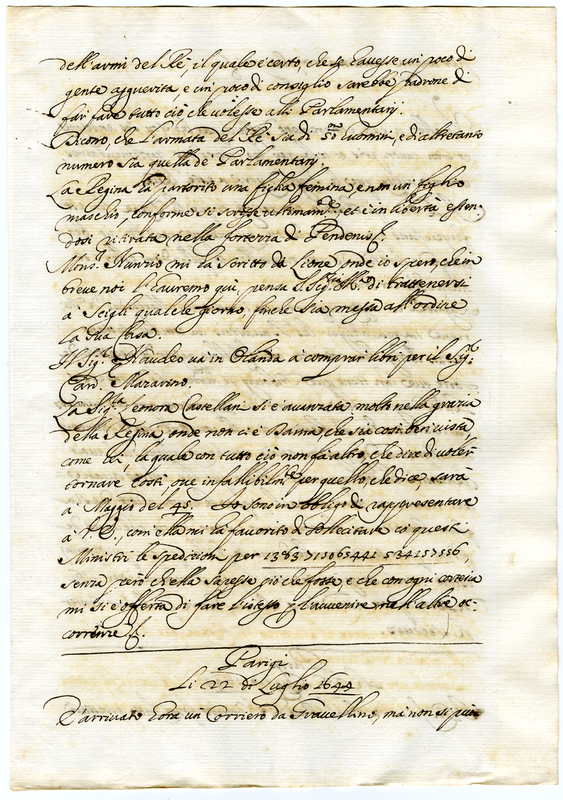 dell'armi del Rè, il quale è certo, che se havesse un poco di
gente agguerita e un poco di consiglio sarebbe padrone di
far fare tutto ciò che volesse alli Parlamentarij.
Dicono, che l'armata del Rè sia di 50 huomini, e di altretanto
numero sia quella de Parlamentarij.
La Regina hà partorito una figlia femina e non un figlio
maschio, conforme si scrisse ultimamte, et è in libertà essen-
dosi ritirata nella fortezza di Pendenis
Monsr. Nunnio mi hà scritto da Lione, onde io spero, che in
breve noi l'havremo qui, pensa S. Sigria Ill. di trattenersi
à qualche giorno, finche sia messa all'ordine
la sua Casa.
Il Sigr. Naudeo va in Olanda à comprar libri per il Sigr.
Card. Mazarino.
La Sigra Leonora Castellani si è avanzata molto nella grazia
della Regina, onde non ci è Dama, che sia così ben vista,
come lei, la quale con tutto ciò non fa altro, che dire di voler
tornare costì, che infallibilmte per quello, che dice, sarà
à Maggio del 45. Io sono in obbligo di rappresentare
à V. com'ella mi hà favorito di sollecitare co questi
Ministri le spedizioni per 1383715065441 534157556,
senza però ch'ella sapesse ciò che fosse, e che con ogni cortesia
mi si è offerta di fare l'istesso p l'avvenire nell'altre oc-
correnze
Parigi
Li 22 di Luglio 1644
È arrivato hora un Corriero da Gravellino, mà non si può